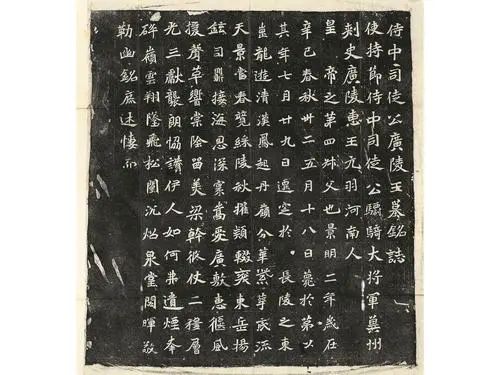 侍中司徒公廣陵王墓銘誌
使持節侍中司徒公驃騎大將軍冀州
刺史廣陵惠王元羽河南人
皇帝之第四叔父也景明二年歲在
辛巳春秋卅二五月十八日薨於第以
其年七月廿九日遷窆於長陵之東
崗龍遊清漢鳳起丹嶺分華紫萼底流
天景當春競綵陵秋擢穎輟東岳揚
鉉司鼎接海思深霄嵩愛廣敷惠偃風
聲草響棠陰留美梁幹仗二層
光三獻襲朗協讚伊人如何弗遺煙峯
碎嶺雲翔墜飛松闈沉炤泉堂閟暉敬
勒幽銘庶述悽而